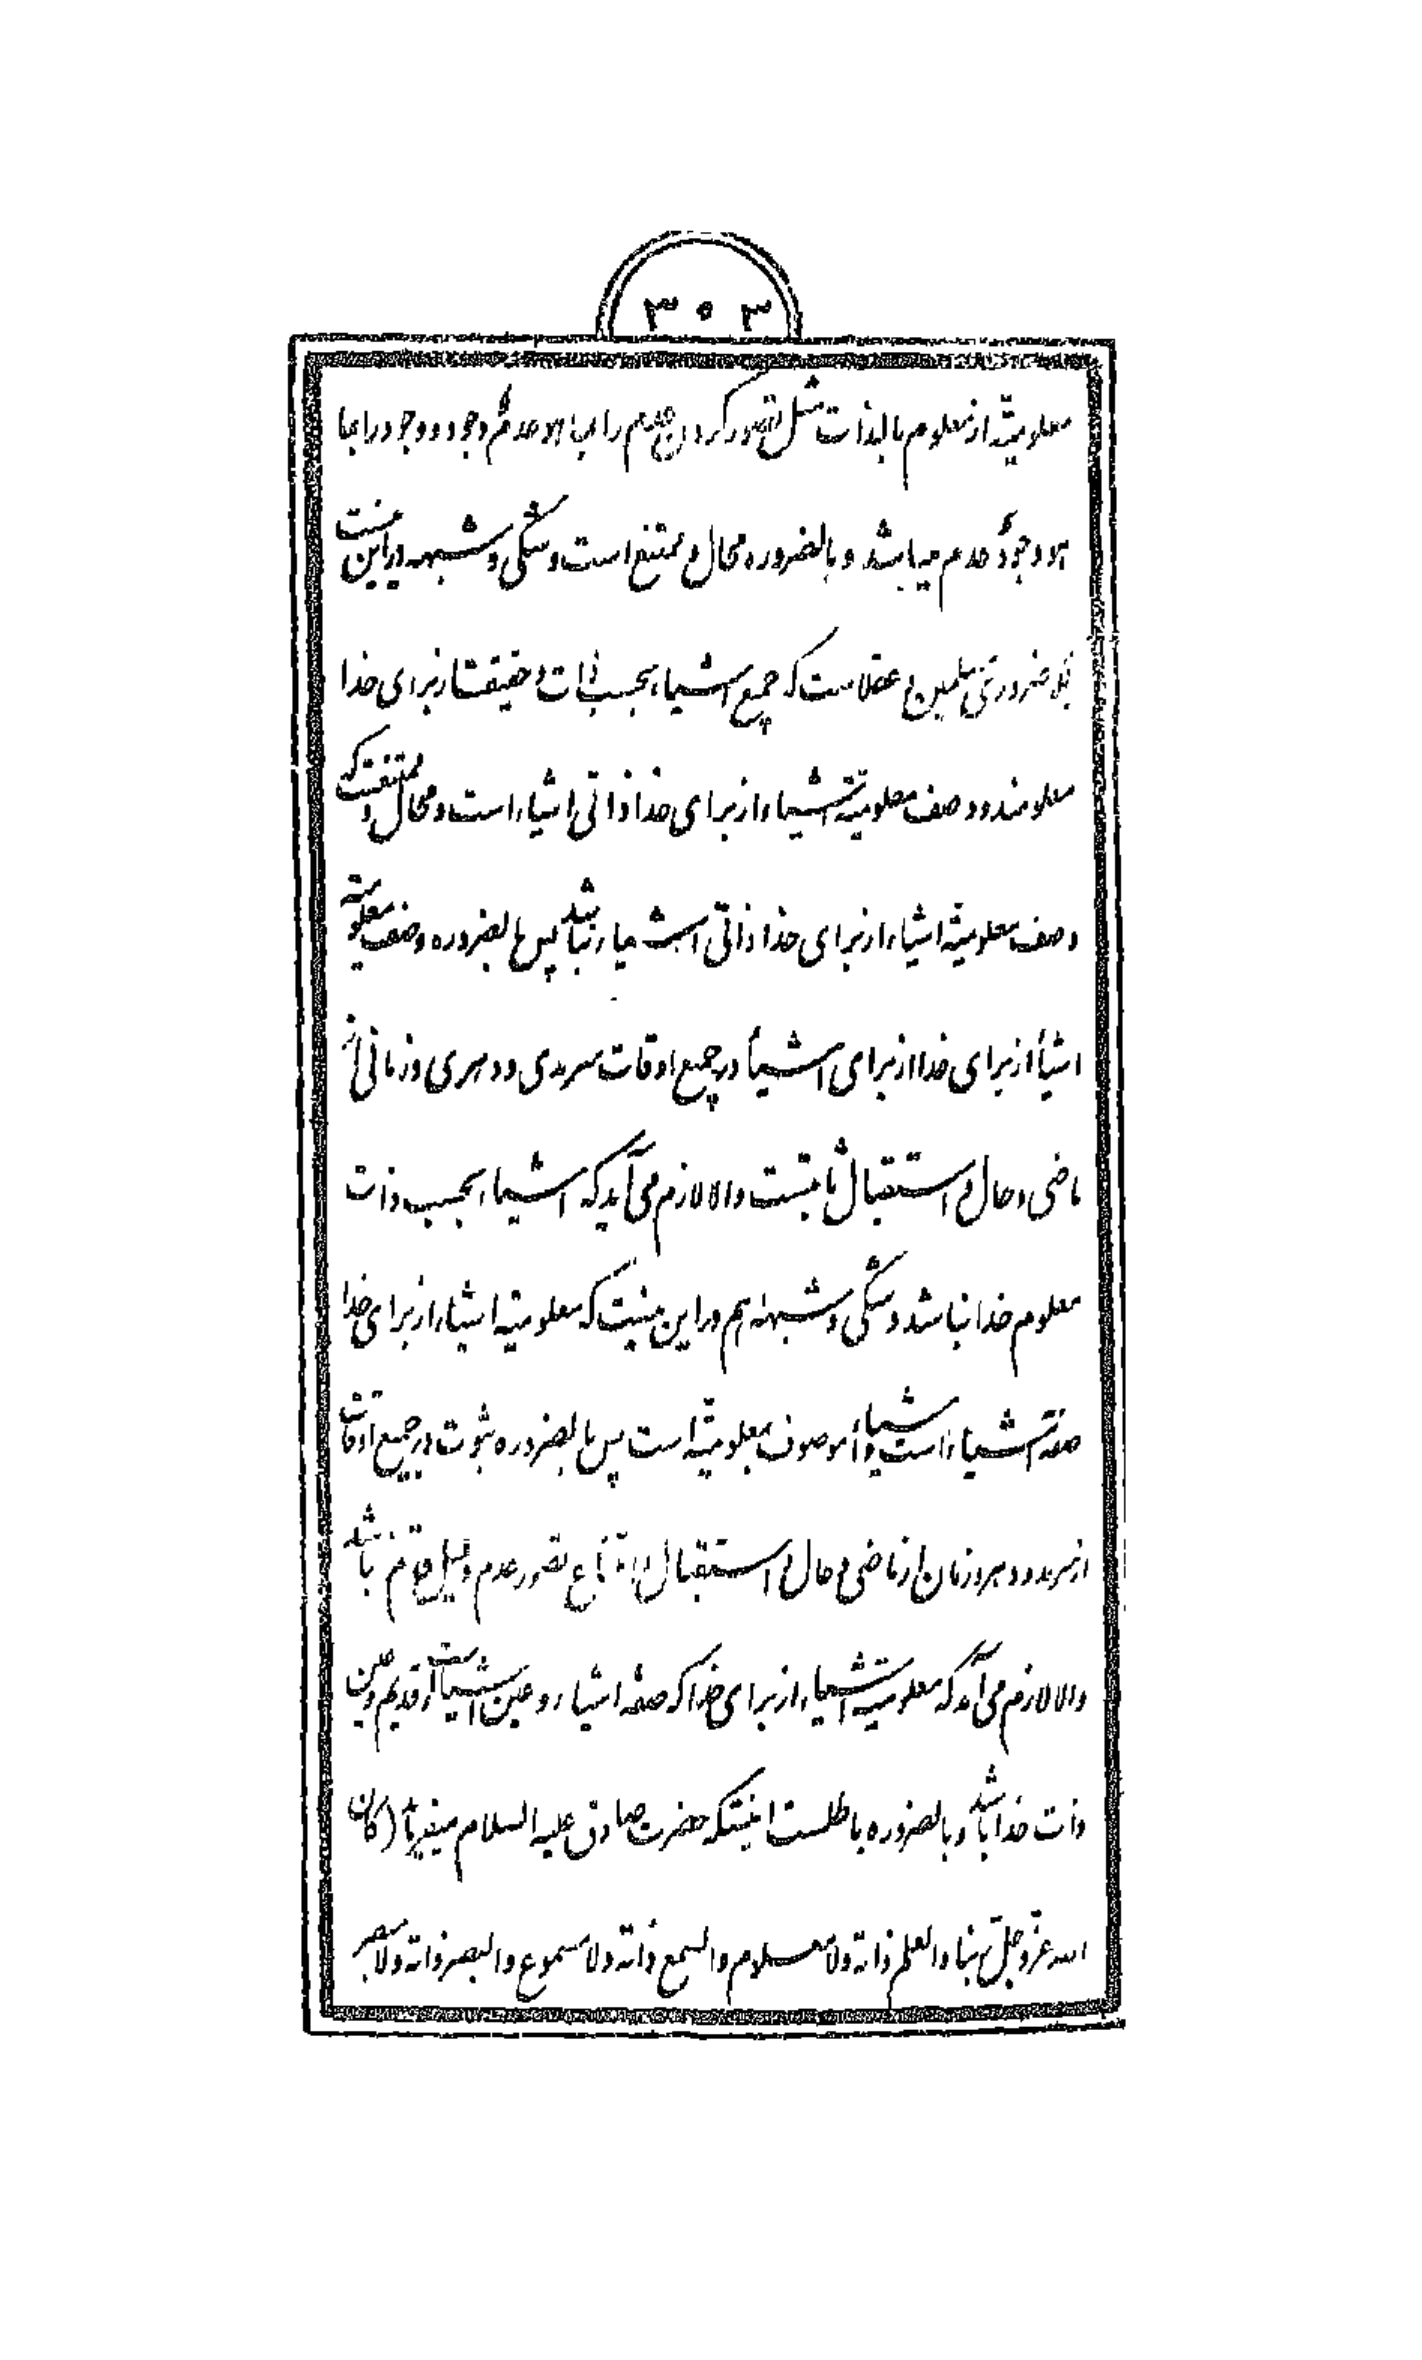 ۳۰۳
معلومیّة از معلوم بالذات مثل تصور کردن عدم را بما هو عدمٌ وجود و وجود را بما
هو وجودٌ عدم میباشد و بالضروره محال و ممتنع است و شکی و شبهه در این نیست
بلکه ضروری مسلمین و عقلاست که جمیع اشیاء بحسب ذات و حقیقت از برای خدا
معلومند و وصف معلومیّة اشیاء از برای خدا ذاتی اشیاء است و محال و ممتنعست که
وصف معلومیّة اشیاء از برای خدا ذاتی اشیاء نباشد پس بالضروره وصف معلومیّة
اشیأ از برای خدا از برای اشیأ در جمیع اوقات سرمدی و دهری و زمانی از
ماضی و حال و استقبال ثابتست والا لازم می‌آید که اشیاء بحسب ذات
معلوم خدا نباشد و شکی و شبهه هم در این نیست که معلومیّة اشیاء از برای خدا
صفة اشیاء است و اشیاء موصوف بمعلومیّة است پس بالضروره ثبوت در جمیع اوقات
از سرمد و دهر و زمان از ماضی و حال و استقبال تصور عدم دلیل قدم نباشد
والا لازم می‌آید که معلومیة اشیاء از برای خدا که صفة اشیاء و عین اشیاست قدیم و عین
ذات خدا باشد و بالضروره باطلست اینستکه حضرت صادق علیه السلام میفرماید (کان
الله عزّ و جلّ ربّنا و العلم ذاته و لا معلوم و السمع ذاته و لا مسموع و البصر ذاته و لا مبصر